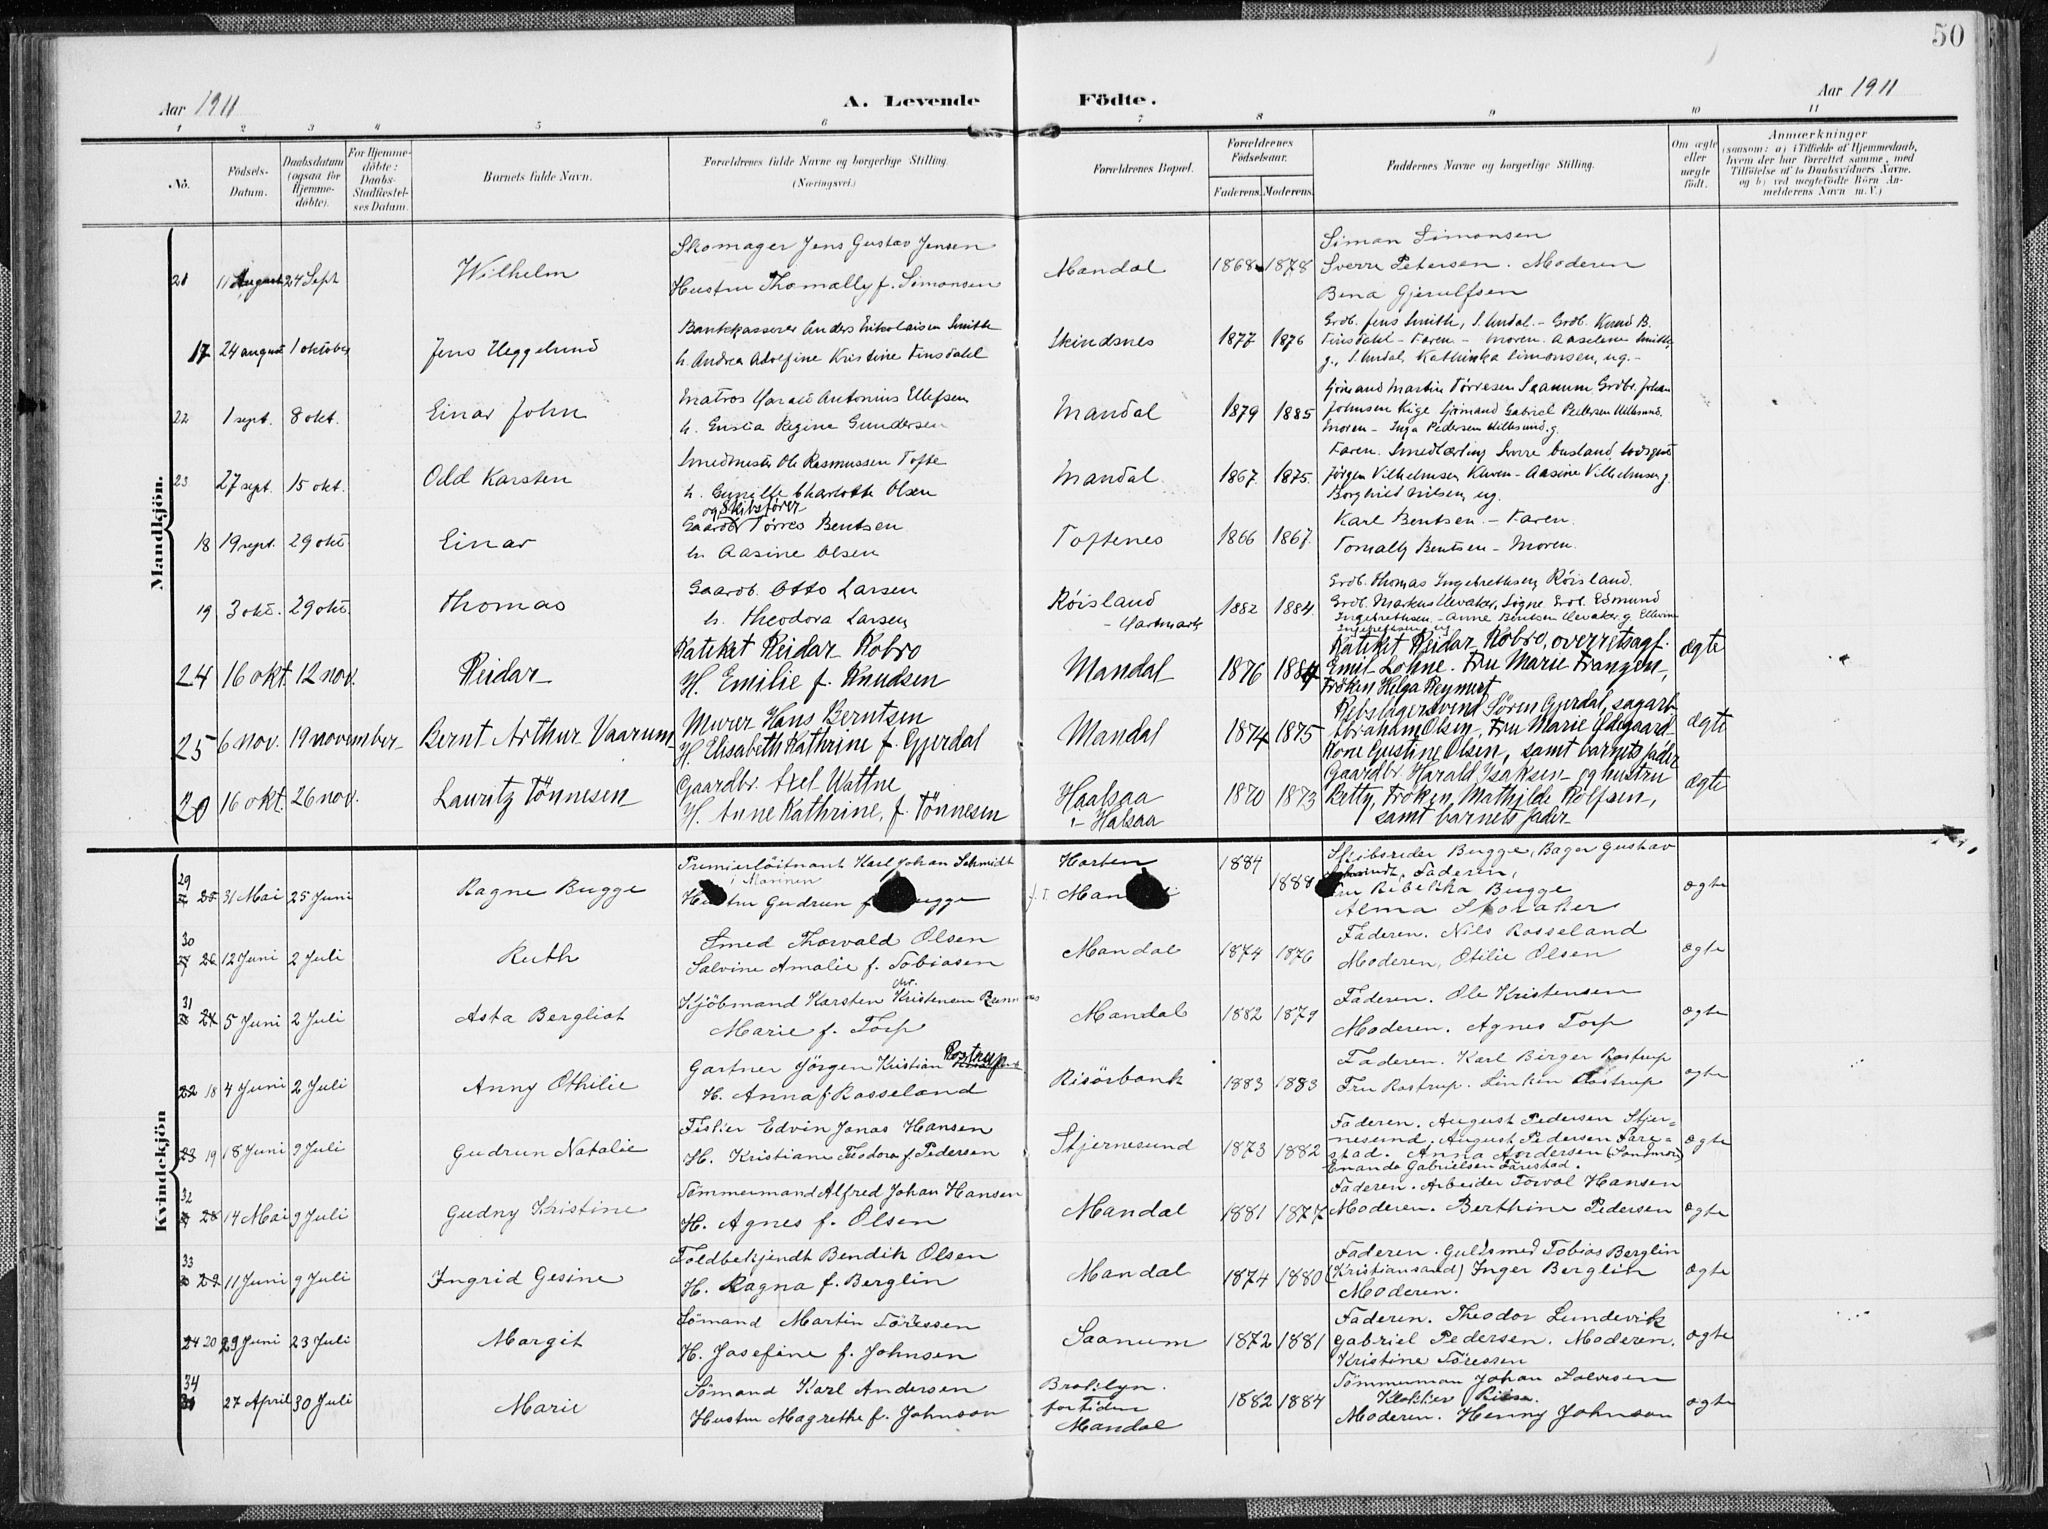 50
Aar 1911
A. Levende Födte.
Aar 1911
1 2 3 4 5 6 7 8 9 10 11
No.
Födsels-Datum.
Daabsdatum (ogsaa for Hjemme-döbte).
For Hjemme-döbte: Daabs-Stadfæstel-ses Datum.
Barnets fulde Navn.
Forældrenes fulde Navne og borgerlige Stilling. (Næringsvei.)
Forældrenes Bopæl.
Forældrenes Fødselsaar.
Faderens. Moderens.
Faddernes Navne og borgerlige Stilling.
Om ægte eller uægte födt.
Anmærkninger
(saasom: a) i Tilfælde af Hjemmedaab, hvem der har forrettet samme, med Tilföielse af to Daabsvidners Navne, og b) ved uægtefödte Börn An-melderens Navn m. V.)
Mandkjön.
21 11 August 24 Sept Wilhelm
Skomager Jens Gustav Jensen
Hustru Thomally f. Simonsen
Mandal 1868 1878
Simon Simonsen
Sverre Petersen. Moderen
Bena Gjerulfsen
17 24 august 1 oktober Jens Ueggelund
Bankkasserer Anders Nikolaisen Smith
h. Andrea Adolfine Kristine Finsdahl
Skindsnes 1877 1876
Grdb. Jens Smith, S. Undal. - Grdb. Knud B.
Finsdahl - Faren - Moren. Aaselene Smith,
g., S. Undal, Kathinka Simonsen, ug. -
22 1 sept. 8 okt. Einar John
Matros Harald Antonius Ellefsen
h. Emilia Regine Gundersen
Mandal 1879 1885
Sjömand Martin Törresen Saanum Grdbr. Johan
Johnsen Kige Sjömand Gabriel Pedersen
Moren - Inga Pedersen g.
23 27 sept. 15 okt. Odd Karsten
Smedmester Ole Rasmussen Tofte
h. Gunille Charlotte Olsen
Mandal 1867 1875.
Faren. Smedlærling Sverre Busland, Lodsgut
Jörgen Vilhelmsen Kleven - Aasine Vilhelmsen g.
Borghild Nilsen, ug.
18 19 sept. 29 okt. Einar
og Skibsfører
Gaardb. Törres Bentsen
h. Aasine Olsen
Toftenes 1866 1867.
Karl Bentsen. - Faren.
Tomally Bentsen - Moren.
19 3 okt. 29 okt. Thomas
Gaardb. Otto Larsen
h. Theodora Larsen
Röisland
- Hartmark
1882 1884.
Grdb. Thomas Ingebrethsen Röisland.
Grdb. Markus Uevaker, Søgne. Grdb. Edmund
Ingebrethsen - Anne Bentsen Uevaker g. Ellevine
Ingebrethsen ug
24 16 okt. 12 nov. Reidar
Kateket Reidar Kobro
H. Emilie f. Knudsen
Mandal 1876 1884
Kateket Reidar Kobro, overretssagf.
Emil Lohne. Fru Marie Frangen,
Frøken Helga Reymert
ægte
25 6 nov. 19 november Bernt Arthur Vaarum
Murer Hans Berntsen
H. Elisabeth Kathrine f. Gjerdal
Mandal 1874 1875
Rebslagersvend Sören Gjerdal, sagarb.
Abraham Olsen, Fru Marie Ødegaard
Kone Gustine Olsen, samt barnets fader
ægte
20 16 okt. 26 nov. Lauritz Tönnesen
Gaardbr. Axel Wattne
H. Anne Kathrine, f. Tönnesen
Haalsaa
i Halsaa
1870 1873
Gaardbr. Harald Isaksen og hustru
Betty, Frøken Mathilde Rolfsen,
samt barnets fader
ægte
Kvindekjön
29 25 31 Mai 25 Juni Ragne Bugge
Premierlöitnant Karl Johan Schmidt
i Marinen
Hustru Gudrun f. Bugge
Horten
f. T. Mandal
1884 1888
Skibsreder Bugge, Bager Gustav
Schmidt, Faderen,
Fru Rebekka Bugge
Alma Storaker
ægte
30 26 12 Juni 2 Juli Ruth
Smed Thorvald Olsen
Salvine Amalie f. Tobiasen
Mandal 1874 1876
Faderen. Nils Rosseland
Moderen, Otilie Olsen
ægte
31 27 5 Juni 2 Juli Asta Bergliot
Kjöbmand Karsten Chr. Kristensen
Marie f. Torp
Mandal 1882 1879
Faderen. Ole Kristensen
Moderen. Agnes Torp
ægte
22 18 4 Juni 2 Juli Anny Othilie
Gartner Jörgen Kristian Rostrup
H. Anna f. Rosseland
Risörbank 1883 1883
Faderen. Karl Birger Rostrup
Fru Rostrup. Linken Rostrup
ægte
23 19 18 Juni 9 Juli Gudrun Natalie
Fisker Edvin Jonas Hansen
H. Kristiane Teodora f. Pedersen
Stjernesund 1873 1882
Faderen. August Pedersen Stjer-
nesund. August Pedersen Fare-
stad. Anna Andersen
Enanda Gabrielsen Farestad.
ægte
32 28 14 Mai 9 Juli Gudny Kristine
Tömmermand Alfred Johan Hansen
H. Agnes f. Olsen
Mandal 1881 1877
Faderen. Arbeider Torval Hansen
Moderen. Berthine Pedersen
ægte
33 29 11 Juni 9 Juli Ingrid Gesine
Toldbetjendt Bendik Olsen
H. Ragna f. Berglin
Mandal 1874 1880
Faderen. Guldsmed Tobias Berglin
(Kristiansand) Inger Berglin
Moderen.
ægte
24 20 29 Juni 23 Juli Margit
Sömand Martin Töressen
H. Josefine f. Johnsen
Saanum 1872 1881
Faderen. Theodor Lundevik
Gabriel Pedersen. Moderen.
Kristine Töressen
ægte
34 30 27 April 30 Juli Marie
Sömand Karl Andersen
Hustru Magrethe f. Johnson
Brooklyn.
for Tiden
Mandal
1882 1884
Tömmerman Johan Salvesen
Klokker Riise.
Moderen. Henny Johnson
ægte